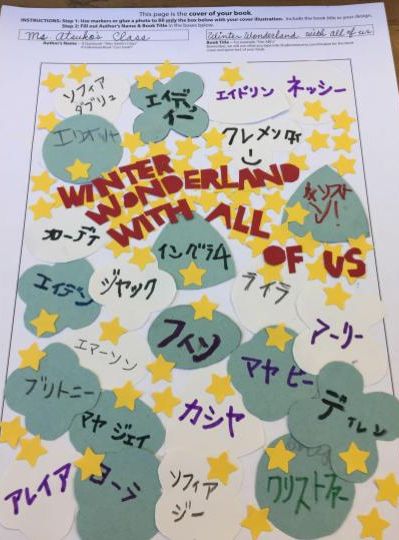 This page is the cover of your book.
INSTRUCTIONS: Step 1: Use markers or glue a photo to fill only the box below with your cover illustration. Include the book title in your design.
Step 2: Fill out Author's Name & Book Title in the boxes below.
Ms. Atsuko's Class
Winter Wonderland with all of us
Author's Name
Book Title
ソフィア
ダブリュ
エイデ
イー
エイドリン
ネッシー
エリオット
クレメンタイ
WINTER
WONDERLAND
WITH ALL
OF US
イングラム
エイデン
ジャック
ライラ
フィン
アーリー
エマーソン
マヤ ビー
ブリトニー
カシヤ
ディレン
マヤ ジェイ
アレイア
ソフィア
ジー
クリストファー